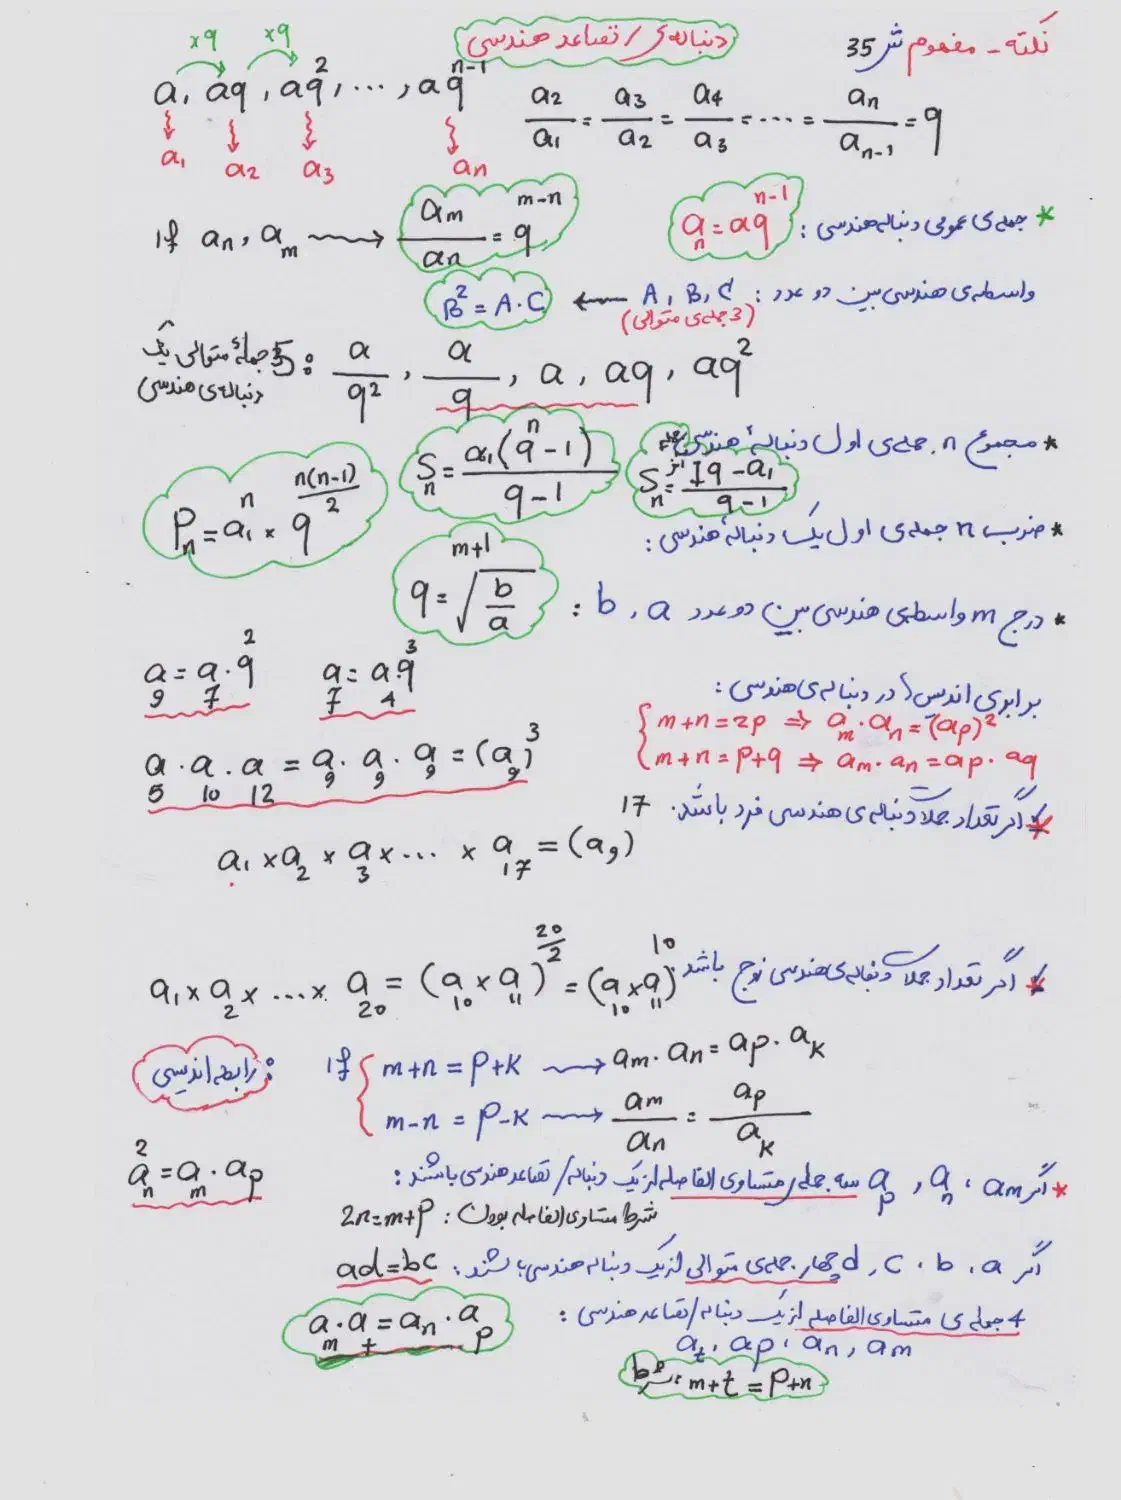 نکته - مفهوم ش 35
دنباله‌ی / تصاعد هندسی
×q ×q
a, aq, aq², ..., aqⁿ⁻¹
a₁ a₂ a₃ aₙ
a₂/a₁ = a₃/a₂ = a₄/a₃ = ... = aₙ/aₙ₋₁ = q
* جمله‌ی عمومی دنباله هندسی : aₙ = aqⁿ⁻¹
If aₙ, aₘ → aₘ/aₙ = qᵐ⁻ⁿ
واسطه‌ی هندسی بین دو عدد : A, B, C ← B² = A·C
(3 جمله‌ی متوالی)
5 جملهٔ متوالی یک دنباله‌ی هندسی : a/q², a/q, a, aq, aq²
* مجموع n جمله‌ی اول دنبالهٔ هندسی
Sₙ = (q - a₁)/(q - 1)
Sₙ = a₁(qⁿ - 1)/(q - 1)
* ضرب n جمله‌ی اول یک دنبالهٔ هندسی :
Pₙ = a₁ⁿ × q^(n(n-1)/2)
* درج m واسطه‌ی هندسی بین دو عدد a, b : q = ᵐ⁺¹√(b/a)
a₉ = a₇·q² a₇ = a₄q³
برابری اندیس‌ها در دنباله‌ی هندسی :
m+n=2p ⇒ aₘ·aₙ=(aₚ)²
m+n=p+q ⇒ aₘ·aₙ=aₚ·a_q
a₅·a₁₀·a₁₂ = a₉·a₉·a₉ = (a₉)³
* اگر تعداد جملات دنباله‌ی هندسی فرد باشد. 17
a₁×a₂×a₃×...×a₁₇=(a₉)
* اگر تعداد جملات دنباله‌ی هندسی زوج باشد
a₁×a₂×...×a₂₀ = (a₁₀×a₁₁)^(20/2) = (a₁₀×a₁₁)¹⁰
رابطه اندیسی :
If m+n = p+k → aₘ·aₙ = aₚ·aₖ
m-n = p-k → aₘ/aₙ = aₚ/aₖ
* اگر aₘ، aₙ، aₚ سه جمله‌ی متساوی الفاصله از یک دنباله/تصاعد هندسی باشند :
aₙ² = aₘ·aₚ
شرط متساوی الفاصله بودن : 2n=m+p
اگر a، b، c، d چهار جمله‌ی متوالی از یک دنباله هندسی باشند : ad=bc
4 جمله‌ی متساوی الفاصله از یک دنباله/تصاعد هندسی :
aₜ، aₚ، aₙ، aₘ
aₘ·aₜ = aₙ·aₚ
شرط : m+t = p+n